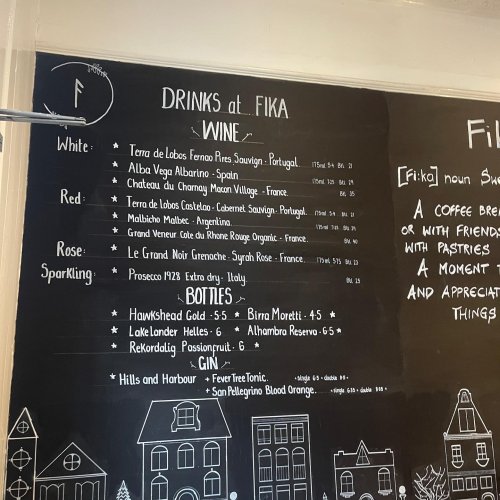 DRINKS at FIKA
WINE
White:
* Terra de Lobos Fernao Pires Sauvign - Portugal. 175ml 5.4 Btl 21
* Alba Vega Albarino - Spain 175ml 7.25 Btl 29
* Chateau du Charnay Macon Village - France. Btl 35
Red:
* Terra de Lobos Castelao - Cabernet Sauvign - Portugal. 175ml 5.4 Btl 21
* Malbicho Malbec - Argentina. 175ml Btl
* Grand Veneur Cote du Rhone Rouge Organic - France. Btl 40
Rose: * Le Grand Noir Grenache - Syrah Rose - France. 175ml 5.75 Btl 23
Sparkling: * Prosecco 1928 Extra dry - Italy. Btl
BOTTLES
* Hawkshead Gold - 5.5 * Birra Moretti - 4.5 *
* Lakelander Helles - 6 * Alhambra Reserva - 6.5 *
* Rekordalig Passionfruit - 6 *
GIN
* Hills and Harbour + Fever Tree Tonic. • single 6.5 • double
+ San Pellegrino Blood Orange. • single • double
Fi
[Fi:ka] noun Swe
A COFFEE BRE
OR WITH FRIENDS
WITH PASTRIES
A MOMENT T
AND APPRECIAT
THINGS